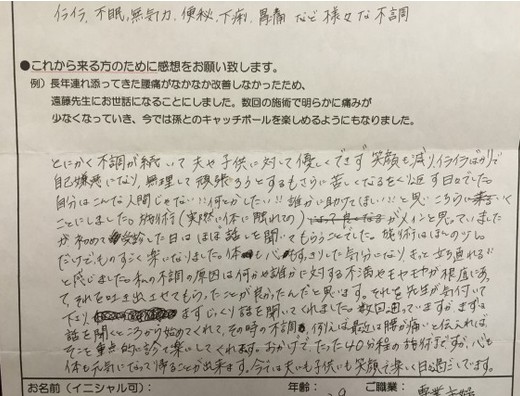 イライラ、不眠、無気力、便秘、下痢、胃痛 など 様々な不調
●これから来る方のために感想をお願い致します。
例）長年連れ添ってきた腰痛がなかなか改善しなかったため、
遠藤先生にお世話になることにしました。数回の施術で明らかに痛みが
少なくなっていき、今では孫とのキャッチボールを楽しめるようにもなりました。
とにかく不調が続いて夫や子供に対して優しくできず 笑顔も減り、イライラばかりで
自己嫌悪になり、無理して頑張ろうとするもさらに苦しくなるをくり返す日々でした。
自分はこんな人間じゃない!! 何がしたい!! 誰か助けてほしい!! と思い こちらに来る
ことにしました。施術（実際に体に触れての）がメインと思っていました
が初めて 受診した日は ほぼ 話しを聞いてもらうことでした。施術はほんの少し
だけでものすごく楽になりました。体も心もすっきりした気分になり きっと立ち直れる!!
と感じました。私の不調の原因は何かや誰かに対する不満やモヤモヤが根底にあっ
て、それを吐き出させてもらったことが良かったんだと思います。それを先生が気付いて
下さり、 まず じっくり話を聞いてくれました。数回通っていますが、まずは
話を聞くところから始めてくれて、その時の不調、例えば最近は腰が痛いと伝えれば
そこを重点的に診て楽にしてくれます。おかげで、たった40分程の施術ですが、心も
体も元気になって帰ることが出来ます。今では夫にも子供にも笑顔で楽しく日々過ごしています。
お名前（イニシャル可）： 年齢： ご職業： 専業主婦